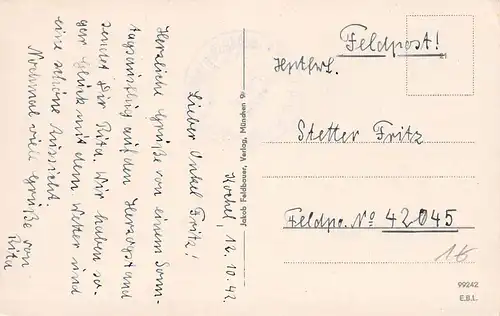 Kochel, 12.10.42.
Lieber Onkel Fritz!
Herzliche Grüße von einem Sonn-
tagsausflug auf den Herzogstand
sendet Dir Rita. Wir haben so-
gar Glück mit dem Wetter und
eine schöne Aussicht.
Nochmal viele Grüße von
Rita
Jakob Feldbauer, Verlag, München 9
Feldpost!
Hptfw.
Stetter Fritz
Feldpo. No 42045
99242
E.B.L.